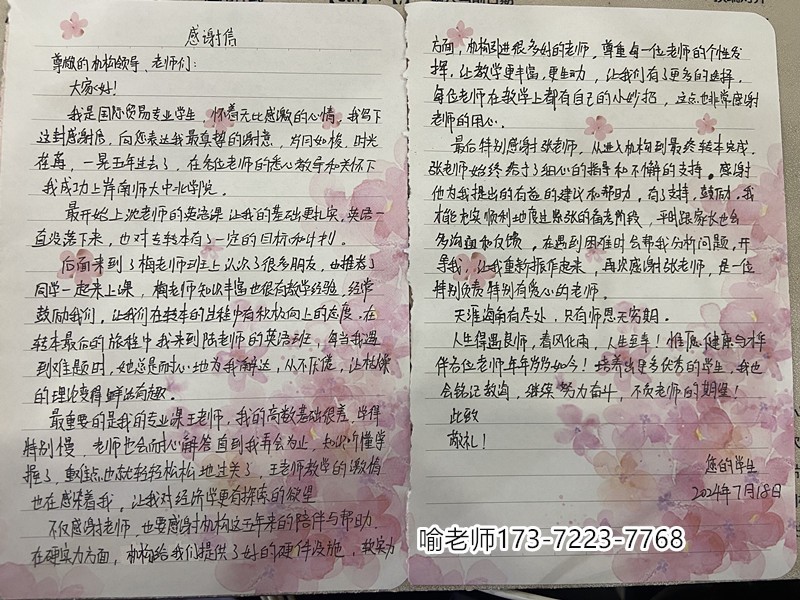 感谢信
尊敬的机构领导、老师们：
大家好！
我是国际贸易专业学生，怀着无比感激的心情，我写下
这封感谢信，向您表达我最真挚的谢意，岁月如梭，时光
荏苒，一晃五年过去了，在各位老师的悉心教导和关怀下
我成功上岸南师大中北学院。
最开始上沈老师的英语课，让我的基础更扎实，英语一
直没落下来，也对专转本有了一定的目标和计划。
后面来到了梅老师班上认识了很多朋友，也推荐了
同学一起来上课，梅老师知识丰富也很有教学经验，经常
鼓励我们，让我们在转本的过程中有积极向上的态度。在
转本最后的旅程中我来到陆老师的英语班，每当我遇
到难题时，她总是耐心地为我解达，从不厌倦，让枯燥
的理论变得鲜活有趣。
最重要的是我的专业课王老师，我的高数基础很差，学得
特别慢，老师也会耐心解答直到我弄会为止，知识听懂学
握了，重难点也就轻轻松松地过关了，王老师教学的激情
也在感染着我，让我对经济学更有探索的欲望
不仅感谢老师，也要感谢机构这五年来的陪伴与帮助，
在硬实力方面，机构给我们提供了好的硬件设施，软实力
方面，机构引进很多好的老师，尊重每一位老师的个性发
挥，让教学更丰富，更生动，让我们有了更多的选择，
每位老师在教学上都有自己的小妙招，这点也非常感谢
老师的用心。
最后特别感谢张老师，从进入机构到最终转本完成，
张老师始终给予了细心的指导和不懈的支持。感谢
他为我提出的有益的建议和帮助，有了支持，鼓励，我
才能老实顺利地度过紧张的备考阶段，平时跟家长也会
多沟通和反馈，在遇到困难时会帮我分析问题，开
导我，让我重新振作起来，再次感谢张老师，是一位
特别负责特别有爱心的老师。
天涯海角有尽处，只有师恩无穷期。
人生得遇良师，春风化雨，人生至幸！惟愿健康与幸
伴各位老师年年岁岁如今！培养出更多优秀的学生，我也
会铭记教诲，继续努力奋斗，不负老师的期望！
此致
敬礼！
您的学生
2024年7月18日
喻老师173-7223-7768